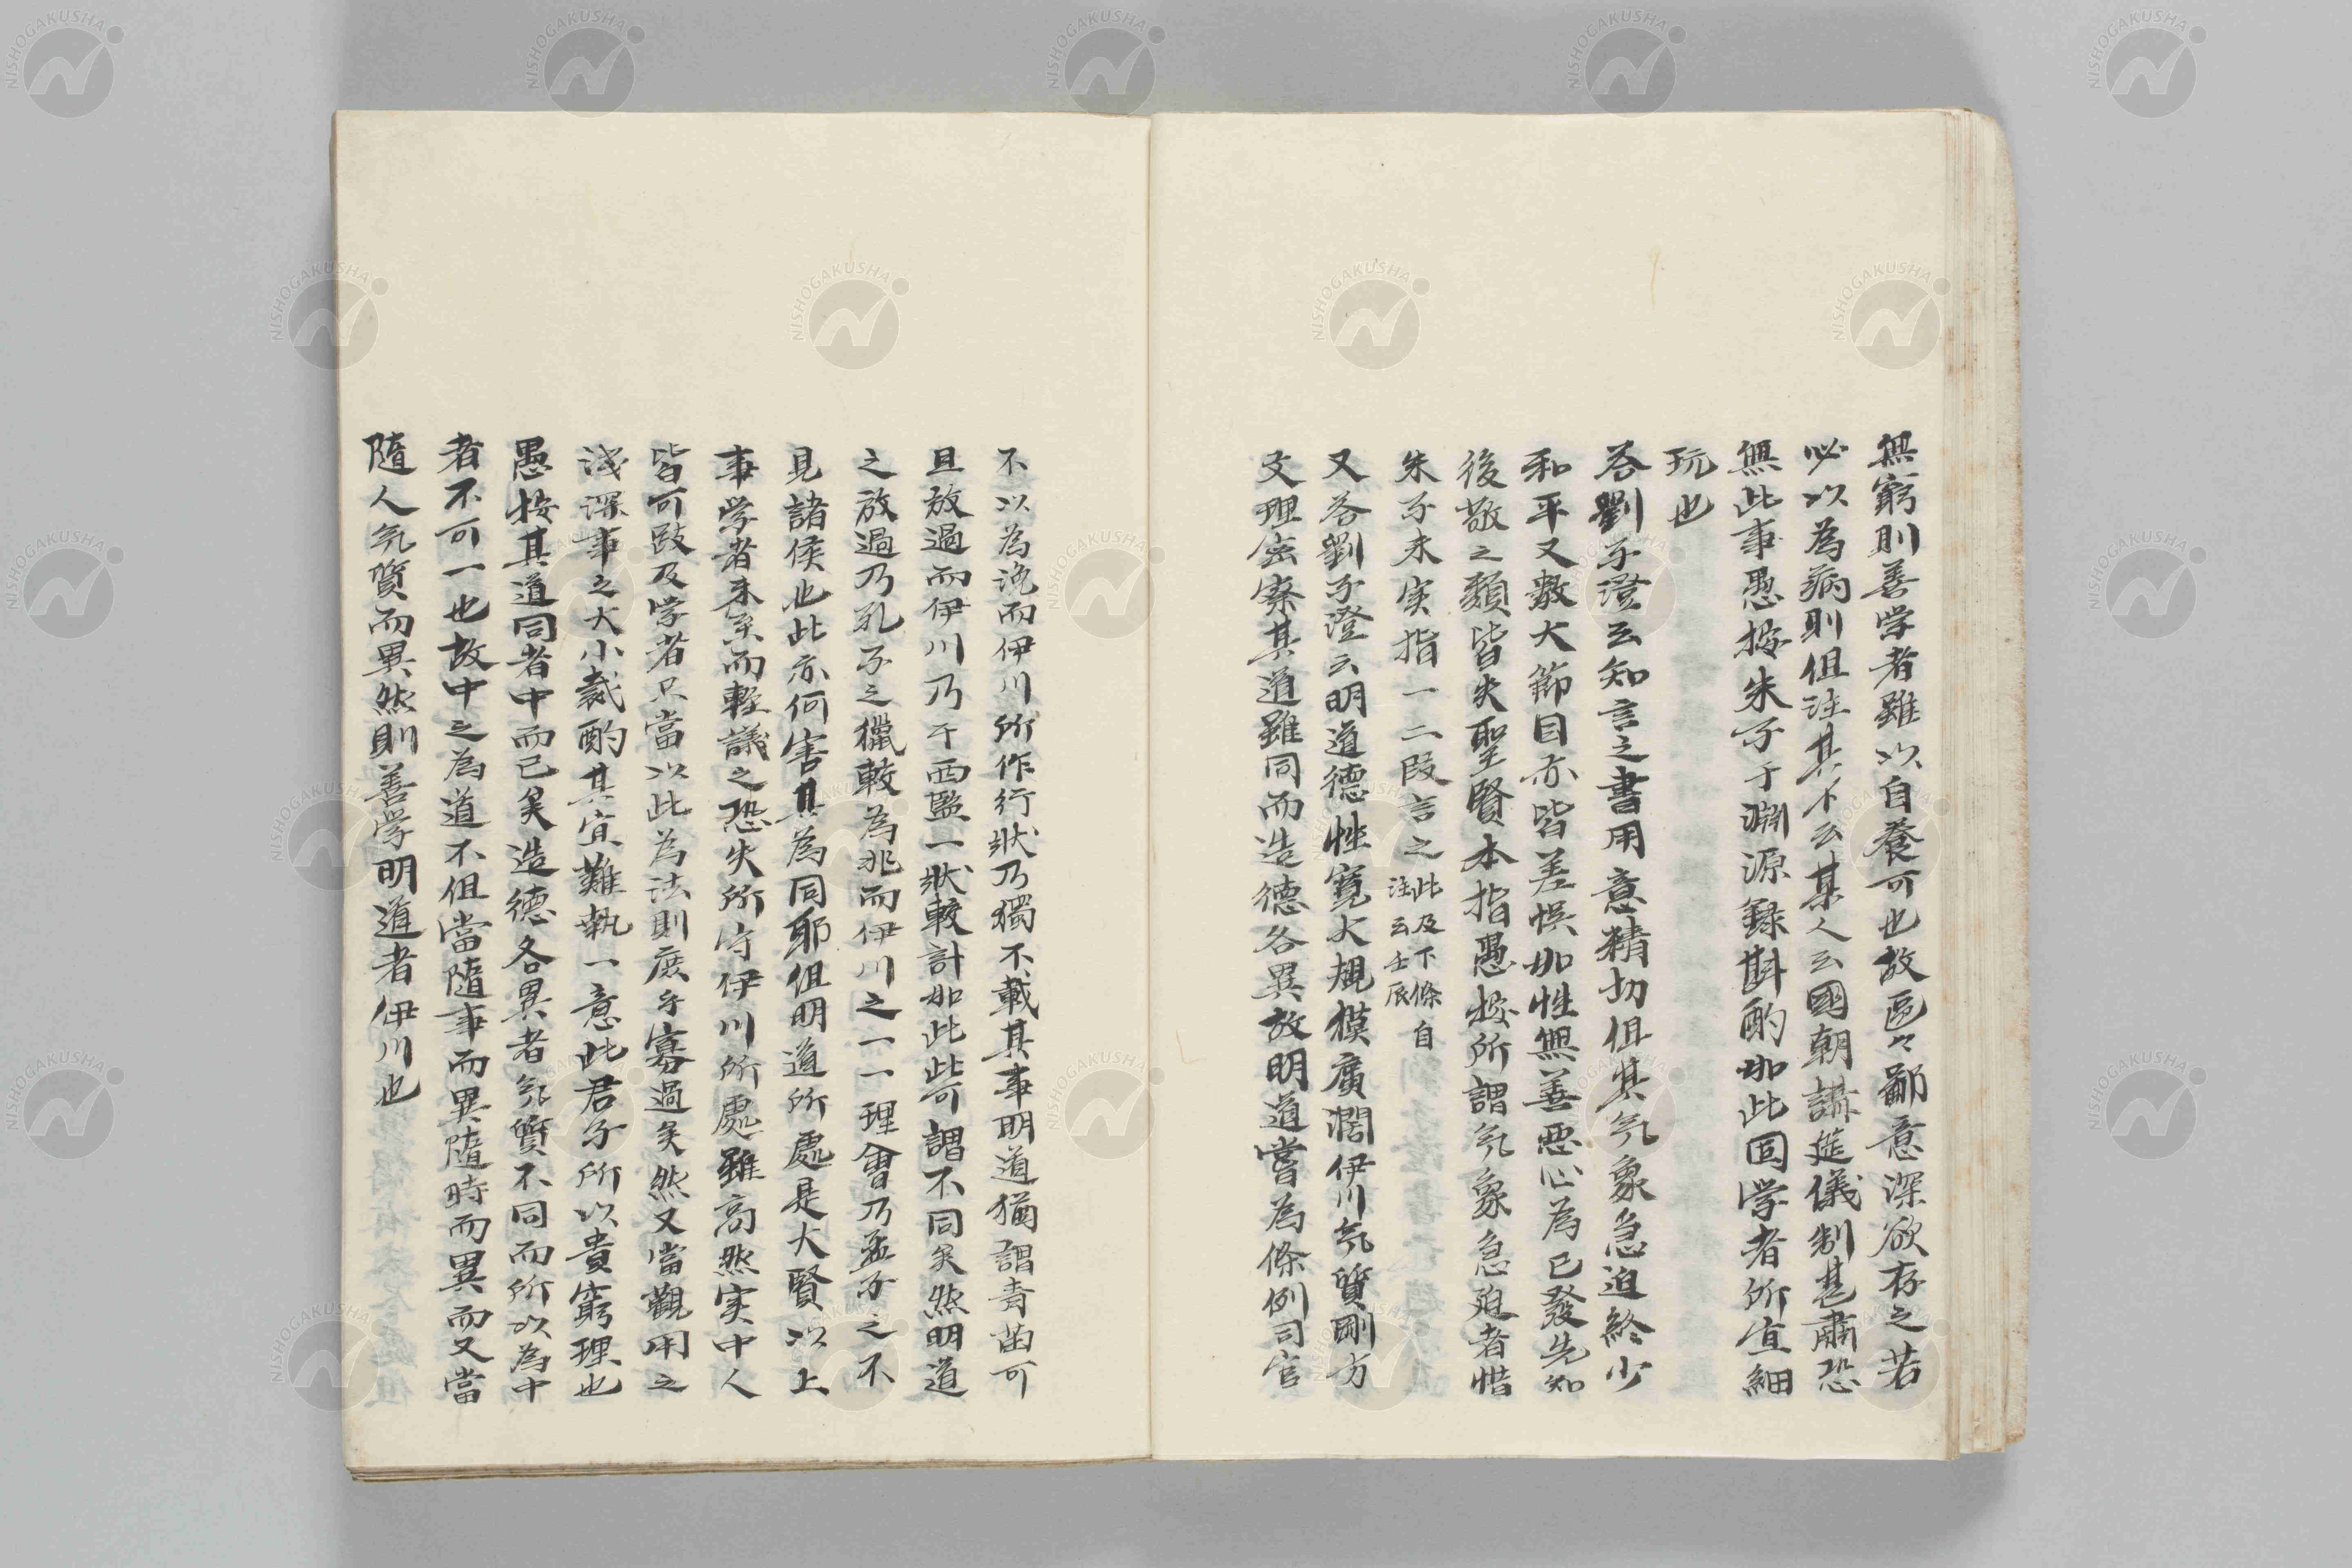 無窮則善学者雖以自養可也故區々鄙意深欲存之若
必以為病則但注其下云某人云國朝講筵儀制甚肅恐
無此事愚按朱子于淵源録斟酌如此固学者所宜細
玩也
答劉子澄云知言之書用意精切但其気象急迫終少
和平又數大節目亦皆差悞如性無善悪心為已發先知
後敬之類皆失聖賢本指愚按所謂気象急迫者惜
朱子未実指一二段言之此及下條自注云壬辰
又答劉子澄云明道德性寛大規模廣濶伊川気質剛方
文理密察其道雖同而造德各異故明道嘗為條例司官
不以為浼而伊川所作行状乃獨不載其事明道猶謂青苗可
且放過而伊川乃于西監一状較計如此此可謂不同矣然明道
之放過乃孔子之獵較為兆而伊川之一一理會乃孟子之不
見諸侯也此亦何害其為同耶但明道所處是大賢以上
事学者未至而輕議之恐失所守伊川所處雖高然実中人
皆可跂及学者只當以此為法則庶乎寡過矣然又當觀用之
浅深事之大小裁酌其宜難執一意此君子所以貴窮理也
愚按其道同者中而已矣造德各異者気質不同而所以為中
者不可一也故中之為道不但當隨事而異隨時而異而又當
隨人気質而異然則善学明道者伊川也
NISHOGAKUSHA